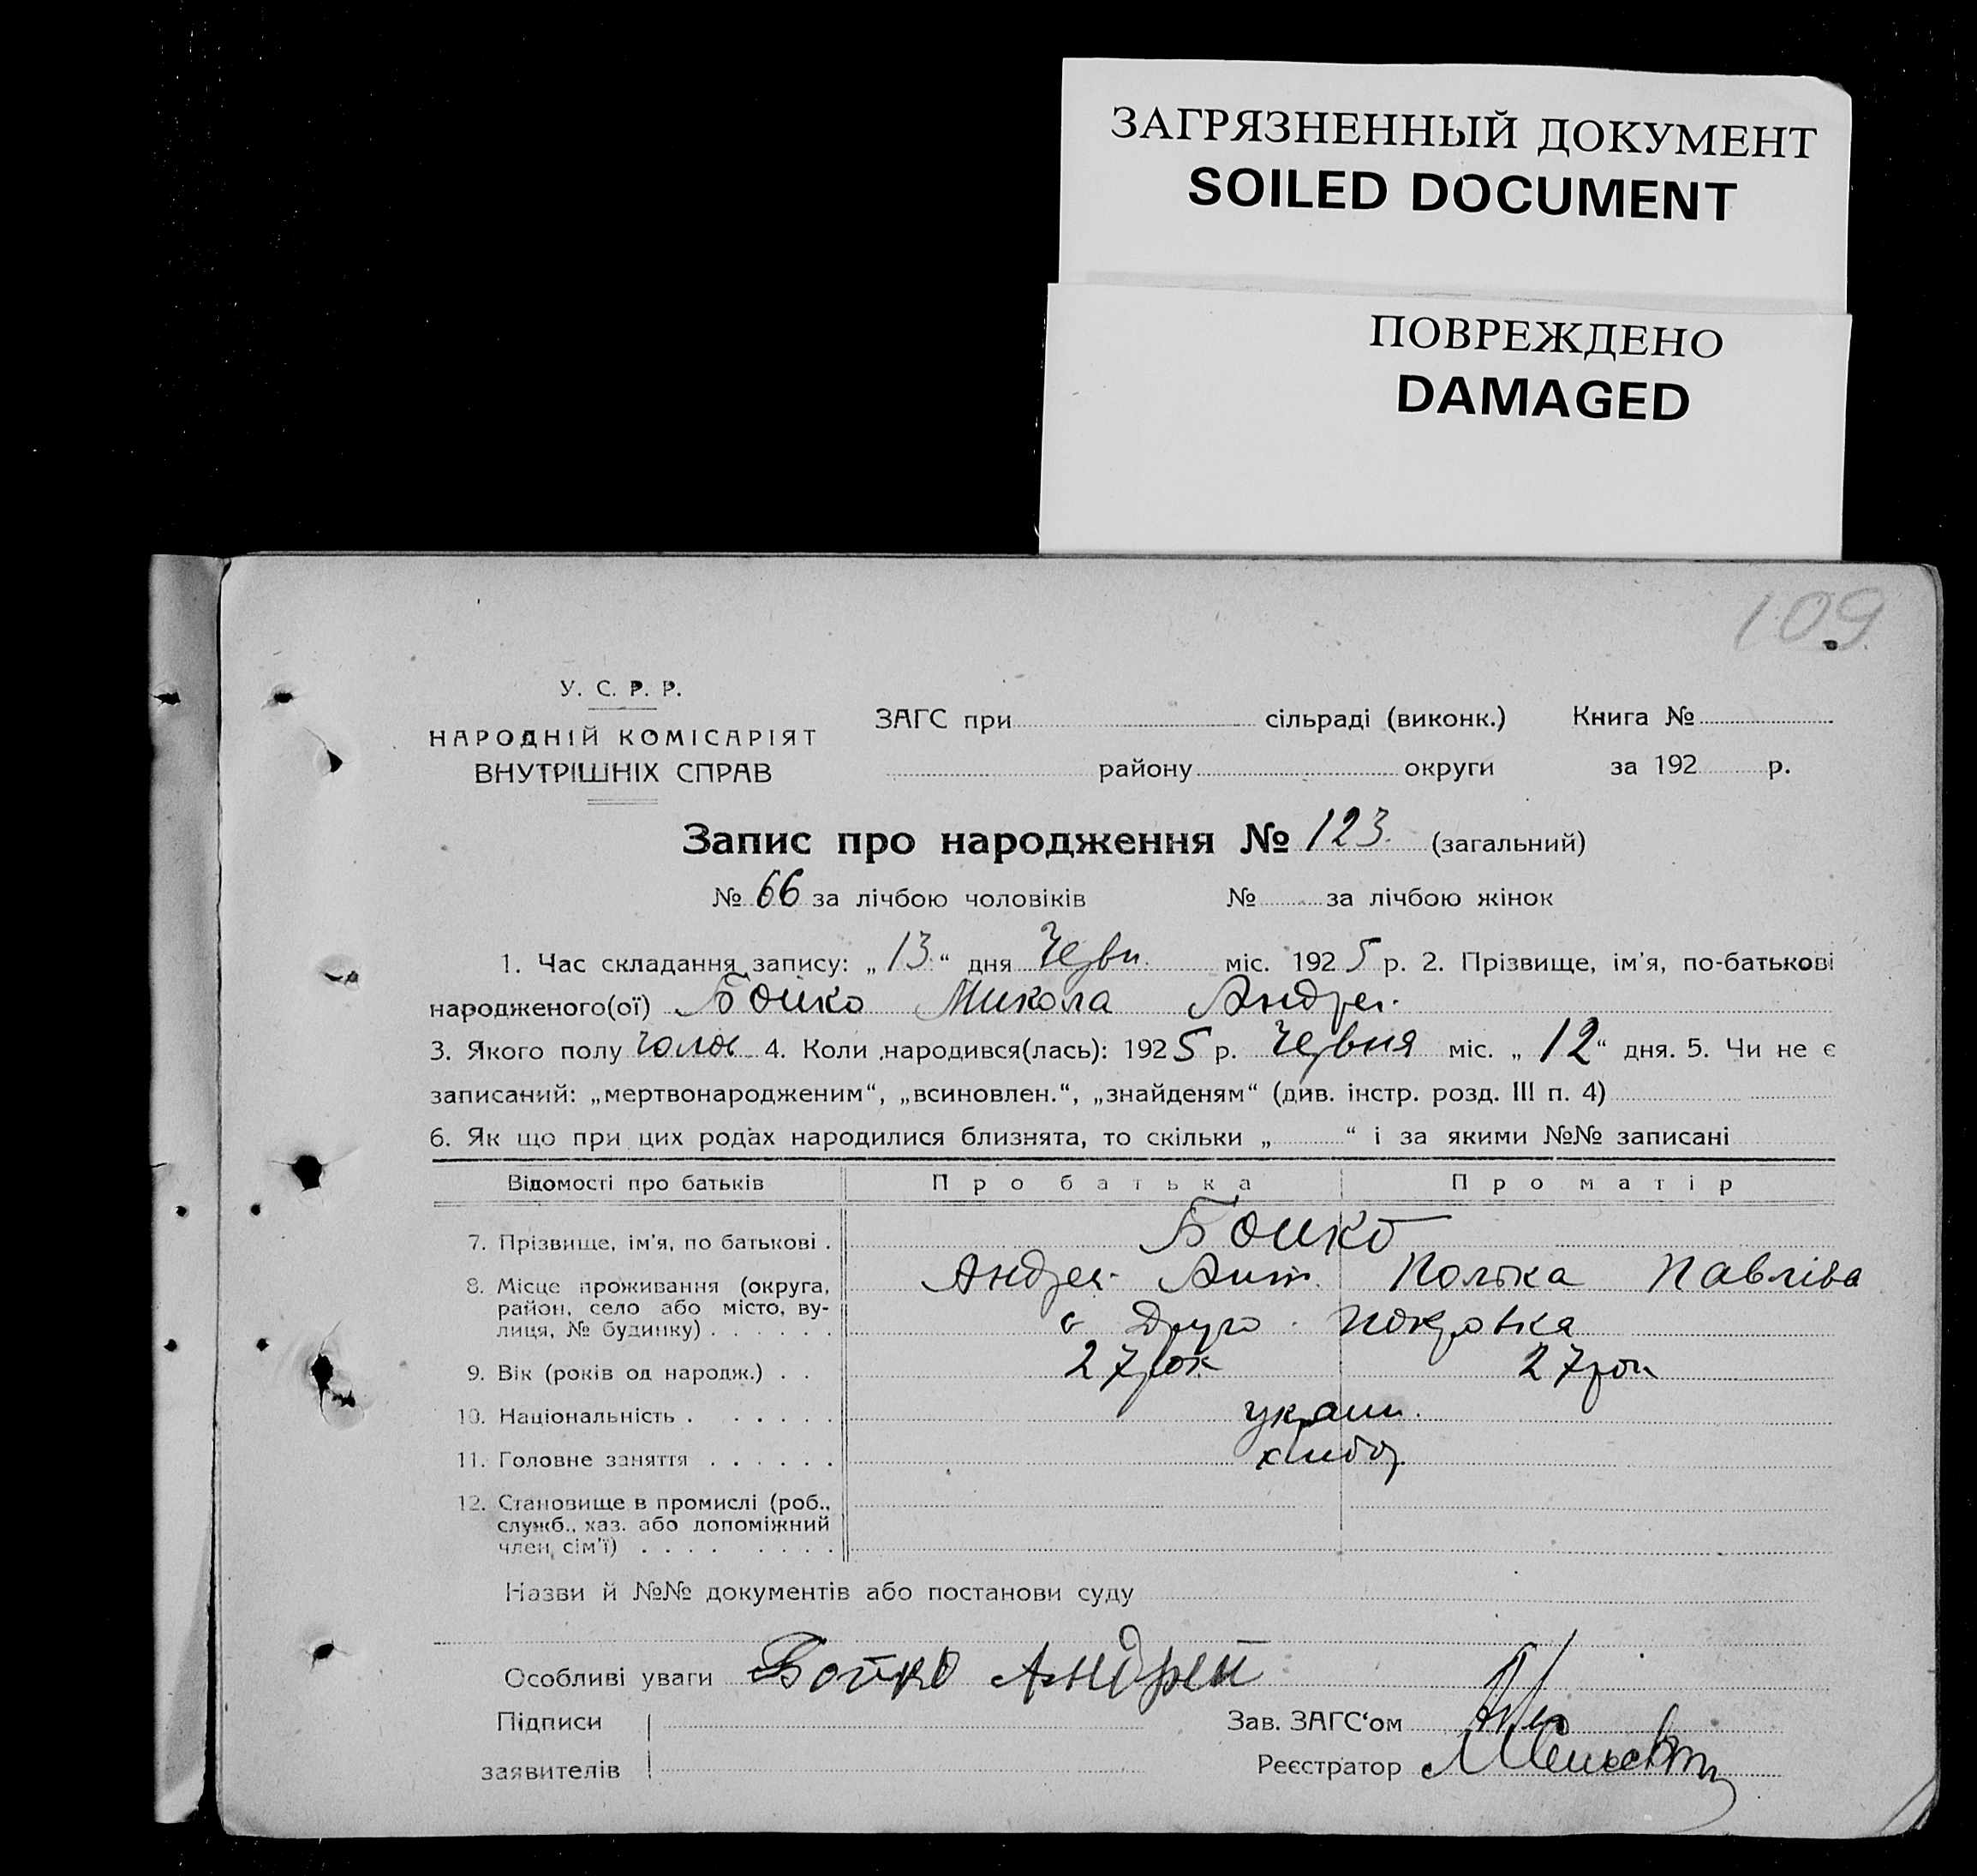 ЗАГРЯЗНЕННЫЙ ДОКУМЕНТ
SOILED DOCUMENT
ПОВРЕЖДЕНО
DAMAGED
109
У. С. Р. Р.
НАРОДНІЙ КОМІСАРІЯТ
ВНУТРІШНІХ СПРАВ
ЗАГС при сільраді (виконк.) Книга №
району округи за 192 р.
Запис про народження № 123. (загальний)
№ 66 за лічбою чоловіків № за лічбою жінок
1. Час складання запису: „13“ дня Червн. міс. 1925 р. 2. Прізвище, ім'я, по-батькові
народженого(ої) Бойко Микола Андре.
3. Якого полу чолов 4. Коли народився(лась): 1925 р. Червня міс. „12“ дня. 5. Чи не є
записаний: „мертвонародженим“, „всиновлен.“, „знайденям“ (див. інстр. розд. III п. 4)
6. Як що при цих родах народилися близнята, то скільки „ “ і за якими №№ записані
Відомості про батьків Про батька Про матір
7. Прізвище, ім'я, по батькові . Бойко
8. Місце проживання (округа, Андре. Ант. Павліва
район, село або місто, ву-
лиця, № будинку) . . . . . . с Друго. Покровка
9. Вік (років од народж.) . . 27 рок 27 рок
10. Національність . . . . . . україн.
11. Головне заняття . . . . . . хлібор
12. Становище в промислі (роб.,
служб., хаз. або допоміжний
член сім'ї) . . . . . . . .
Назви й №№ документів або постанови суду
Особливі уваги Бойко Андрей
Підписи Зав. ЗАГС'ом
заявителів Реєстратор